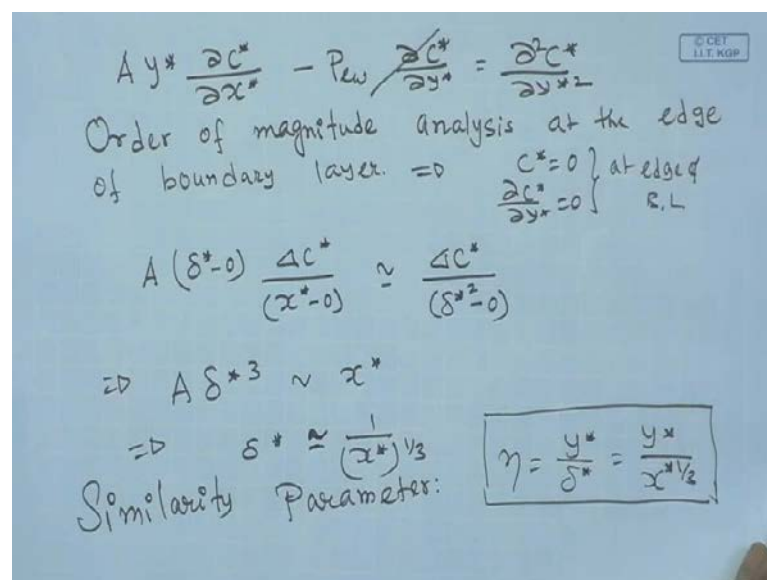 © CET
I.I.T. KGP
A y* ∂c*/∂x* − Pew ∂c*/∂y* = ∂²c*/∂y*²
Order of magnitude analysis at the edge
of boundary layer. ⇒ c*=0 } at edge of
∂c*/∂y* =0 } B.L
A (δ*-0) Δc*/(x*-0) ≃ Δc*/(δ*²-0)
⇒ A δ*³ ~ x*
⇒ δ* ≅ 1/(x*)^1/3
Similarity Parameter: η = y*/δ* = y*/x*^1/3